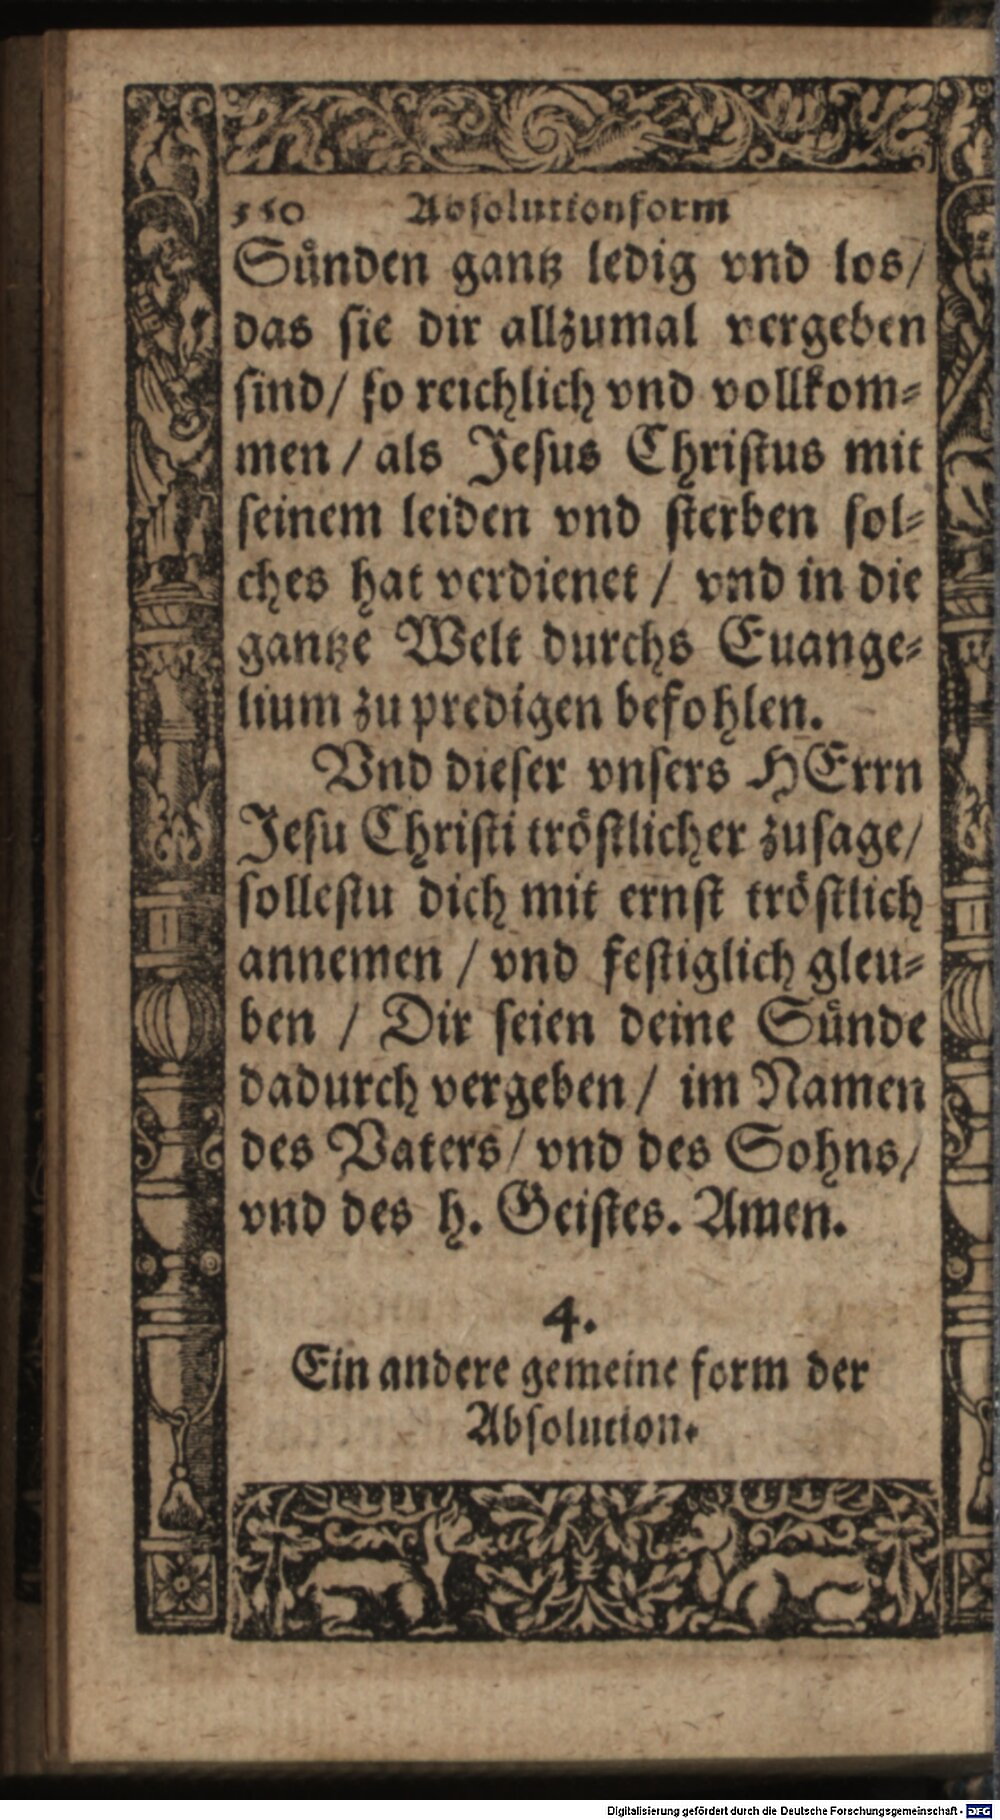 550 Absolutionform
Sůnden gantz ledig vnd los/
das sie dir allzumal vergeben
sind/ so reichlich vnd vollkom⸗
men / als Jesus Christus mit
seinem leiden vnd sterben sol⸗
ches hat verdienet / vnd in die
gantze Welt durchs Euange⸗
lium zu predigen befohlen.
Vnd dieser vnsers HErrn
Jesu Christi tröstlicher zusage/
sollestu dich mit ernst tröstlich
annemen / vnd festiglich gleu⸗
ben / Dir seien deine Sünde
dadurch vergeben / im Namen
des Vaters/ vnd des Sohns/
vnd des h. Geistes. Amen.
4.
Ein andere gemeine form der
Absolution.
Digitalisierung gefördert durch die Deutsche Forschungsgemeinschaft - DFG